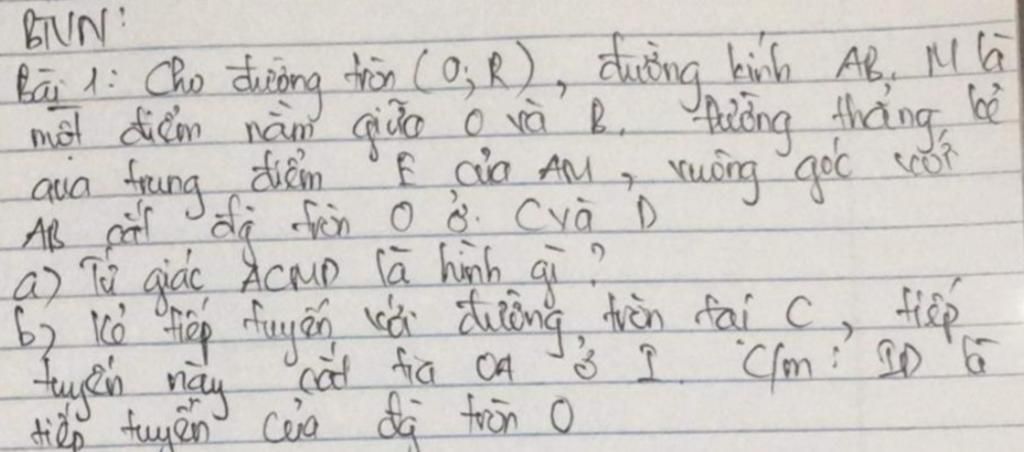 BTVN:
Bài 1: Cho đường tròn (O; R), đường kính AB. M là
một điểm nằm giữa O và B. Đường thẳng kẻ
qua trung điểm E của AM, vuông góc với
AB cắt đg tròn O ở C và D
a) Tứ giác ACMD là hình gì?
b) Kẻ tiếp tuyến với đường tròn tại C, tiếp
tuyến này cắt tia OA ở I. C/m: ID là
tiếp tuyến của đg tròn O